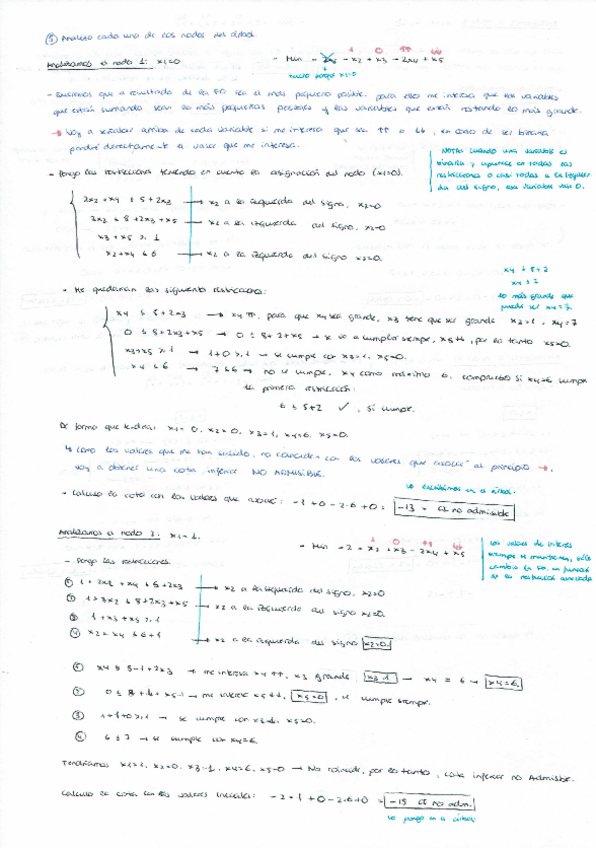 ⑤ Analizo cada uno de los nodos del árbol.
Analizamos el nodo 1: x1=0 - Min - 2x1 - x2 + x3 - 2x4 + x5
1 0 ↑↑ ↓↓
nulo porque x1=0
- Buscamos que el resultado de la FO sea el más pequeño posible. para ello me interesa que las variables
que están sumando sean lo más pequeñas posibles y las variables que están restando lo más grande.
→ Voy a señalar arriba de cada variable si me interesa que sea ↑↑ o ↓↓, en caso de ser binaria
pondré directamente el valor que me interesa.
NOTA: cuando una variable es
binaria y aparece en todas las
restricciones o casi todas a la izquier
da del signo, esa variable vale 0.
- Pongo las restricciones teniendo en cuenta la asignación del nodo (x1=0).
2x2 + x4 ≤ 5 + 2x3 → x2 a la izquierda del signo, x2=0
3x2 ≤ 8 + 2x3 + x5 → x2 a la izquierda del signo, x2=0
x3 + x5 ≥ 1
x2 + x4 ≤ 6 → x2 a la izquierda del signo x2=0.
x4 ≤ 5+2
x4 ≤ 7
lo más grande que
puede ser x4=7.
- Me quedarían las siguiente restricciones:
x4 ≤ 5 + 2x3 → x4 ↑↑, para que x4 sea grande, x3 tiene que ser grande x3=1, x4=7
0 ≤ 8 + 2x3 + x5 → 0 ≤ 8 + 2 + x5 → se va a cumplir siempre, x5 ↓↓, por lo tanto x5=0.
x3+x5 ≥ 1 → 1+0 ≥ 1 → se cumple con x3=1, x5=0.
x4 ≤ 6 → 7 ≤ 6 → no se cumple, x4 como máximo 6, compruebo si x4=6 cumple
la primera restricción:
6 ≤ 5+2 ✓, sí cumple.
De forma que tendría: x1=0, x2=0, x3=1, x4=6, x5=0.
↳ como los valores que me han salido, no coinciden con los valores que asocié al principio →,
voy a obtener una cota inferior NO ADMISIBLE.
lo escribimos en el árbol.
- Calculo la cota con los valores que asocié: -1 + 0 - 2·6 + 0 = -13 = CI no admisible
Analizamos el nodo 2: x1=1. - Min - 2 - x2 + x3 - 2x4 + x5
1 0 ↑↑ ↓↓
Los valores de interés
siempre se mantienen, sólo
- Pongo las restricciones:
① 1 + 2x2 + x4 ≤ 5 + 2x3 → x2 a la izquierda del signo, x2=0
② 1 + 3x2 ≤ 8 + 2x3 + x5 → x2 a la izquierda del signo x2=0.
③ 1 + x3 + x5 ≥ 1
④ x2 + x4 ≤ 6+1 → x2 a la izquierda del signo x2=0.
① x4 ≤ 5-1+2x3 → me interesa x4 ↑↑, x3 grande x3=1 → x4 ≤ 6 → x4=6.
② → me interesa x5 ↓↓, x5=0, se cumple siempre.
③ 1+1+0 ≥ 1 → se cumple con x3=1, x5=0.
④ 6 ≤ 7 → se cumple con x4=6.
Tendríamos x1=1, x2=0, x3=1, x4=6, x5=0 → No coincide, por lo tanto, cota inferior no Admisible.
Calculo la cota con los valores iniciales: -2 - 1 + 0 - 2·6 + 0 = -15 CI no adm.
lo pongo en el árbol